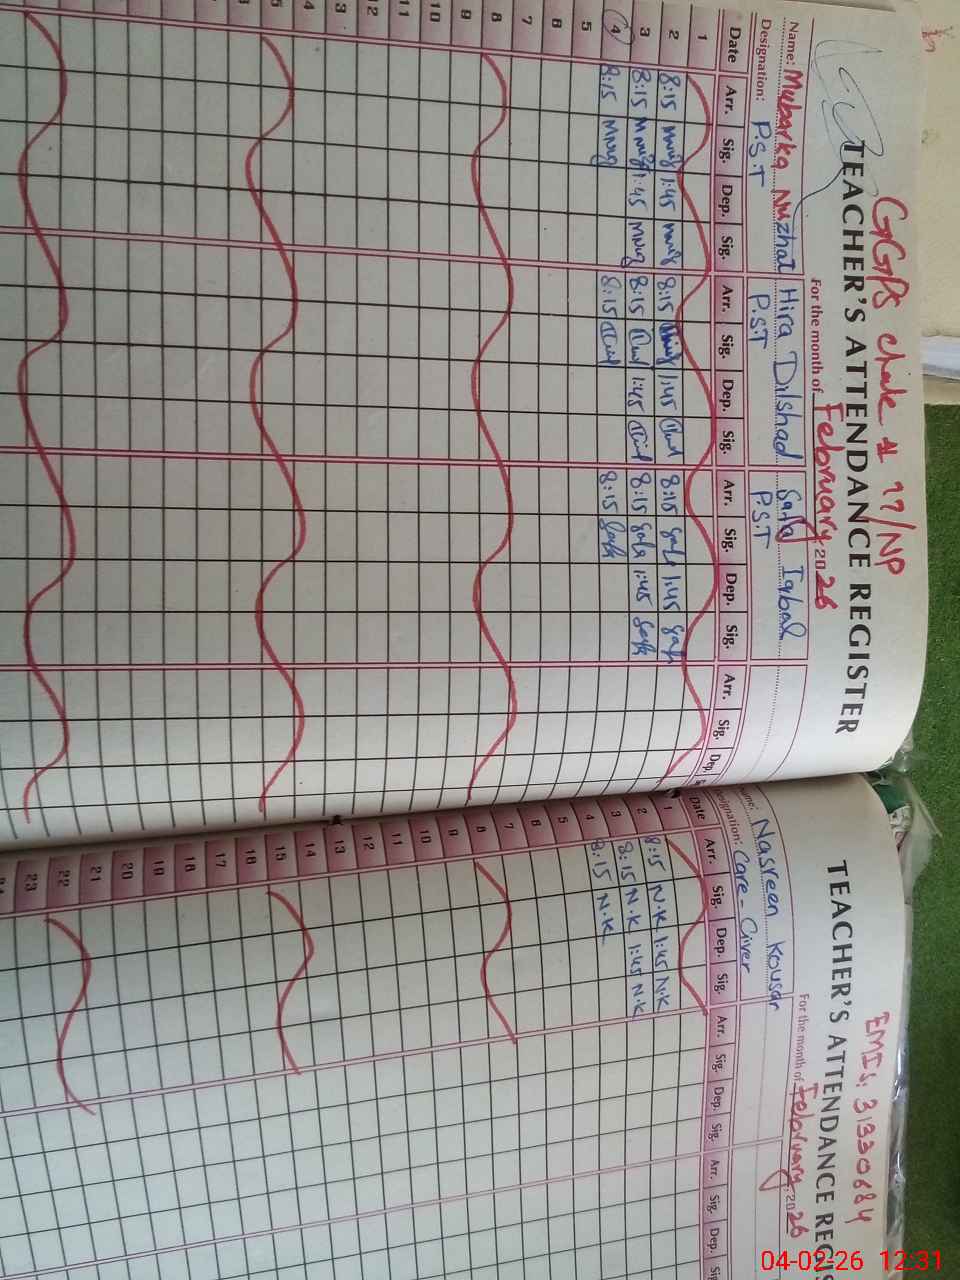 GGPS chak # 77/NP
TEACHER'S ATTENDANCE REGISTER
For the month of February 2026
Name: Mubarka Nuzhat Hira Dilshad Safa Iqbal
Designation: P.S.T P.S.T P.S.T
Date Arr. Sig. Dep. Sig. Arr. Sig. Dep. Sig. Arr. Sig. Dep. Sig. Arr. Sig. Dep.
1
2 8:15 1:45 8:15 1:45 8:15 1:45
3 8:15 1:45 8:15 1:45 8:15 1:45
4 8:15 8:15 8:15
5
6
7
8
9
10
11
12
EMIS: 31330684
TEACHER'S ATTENDANCE REGIS
For the month of February 2026
Name: Nasreen Kousar
Designation: Care-Giver
Date Arr. Sig. Dep. Sig. Arr. Sig. Dep. Sig. Arr. Sig. Dep. Sig.
1
2 8:15 N.K 1:45 N.K
3 8:15 N.K 1:45 N.K
4 8:15 N.K
5
6
7
8
9
10
11
12
13
14
15
16
17
18
19
20
21
22
23
04-02-26 12:31